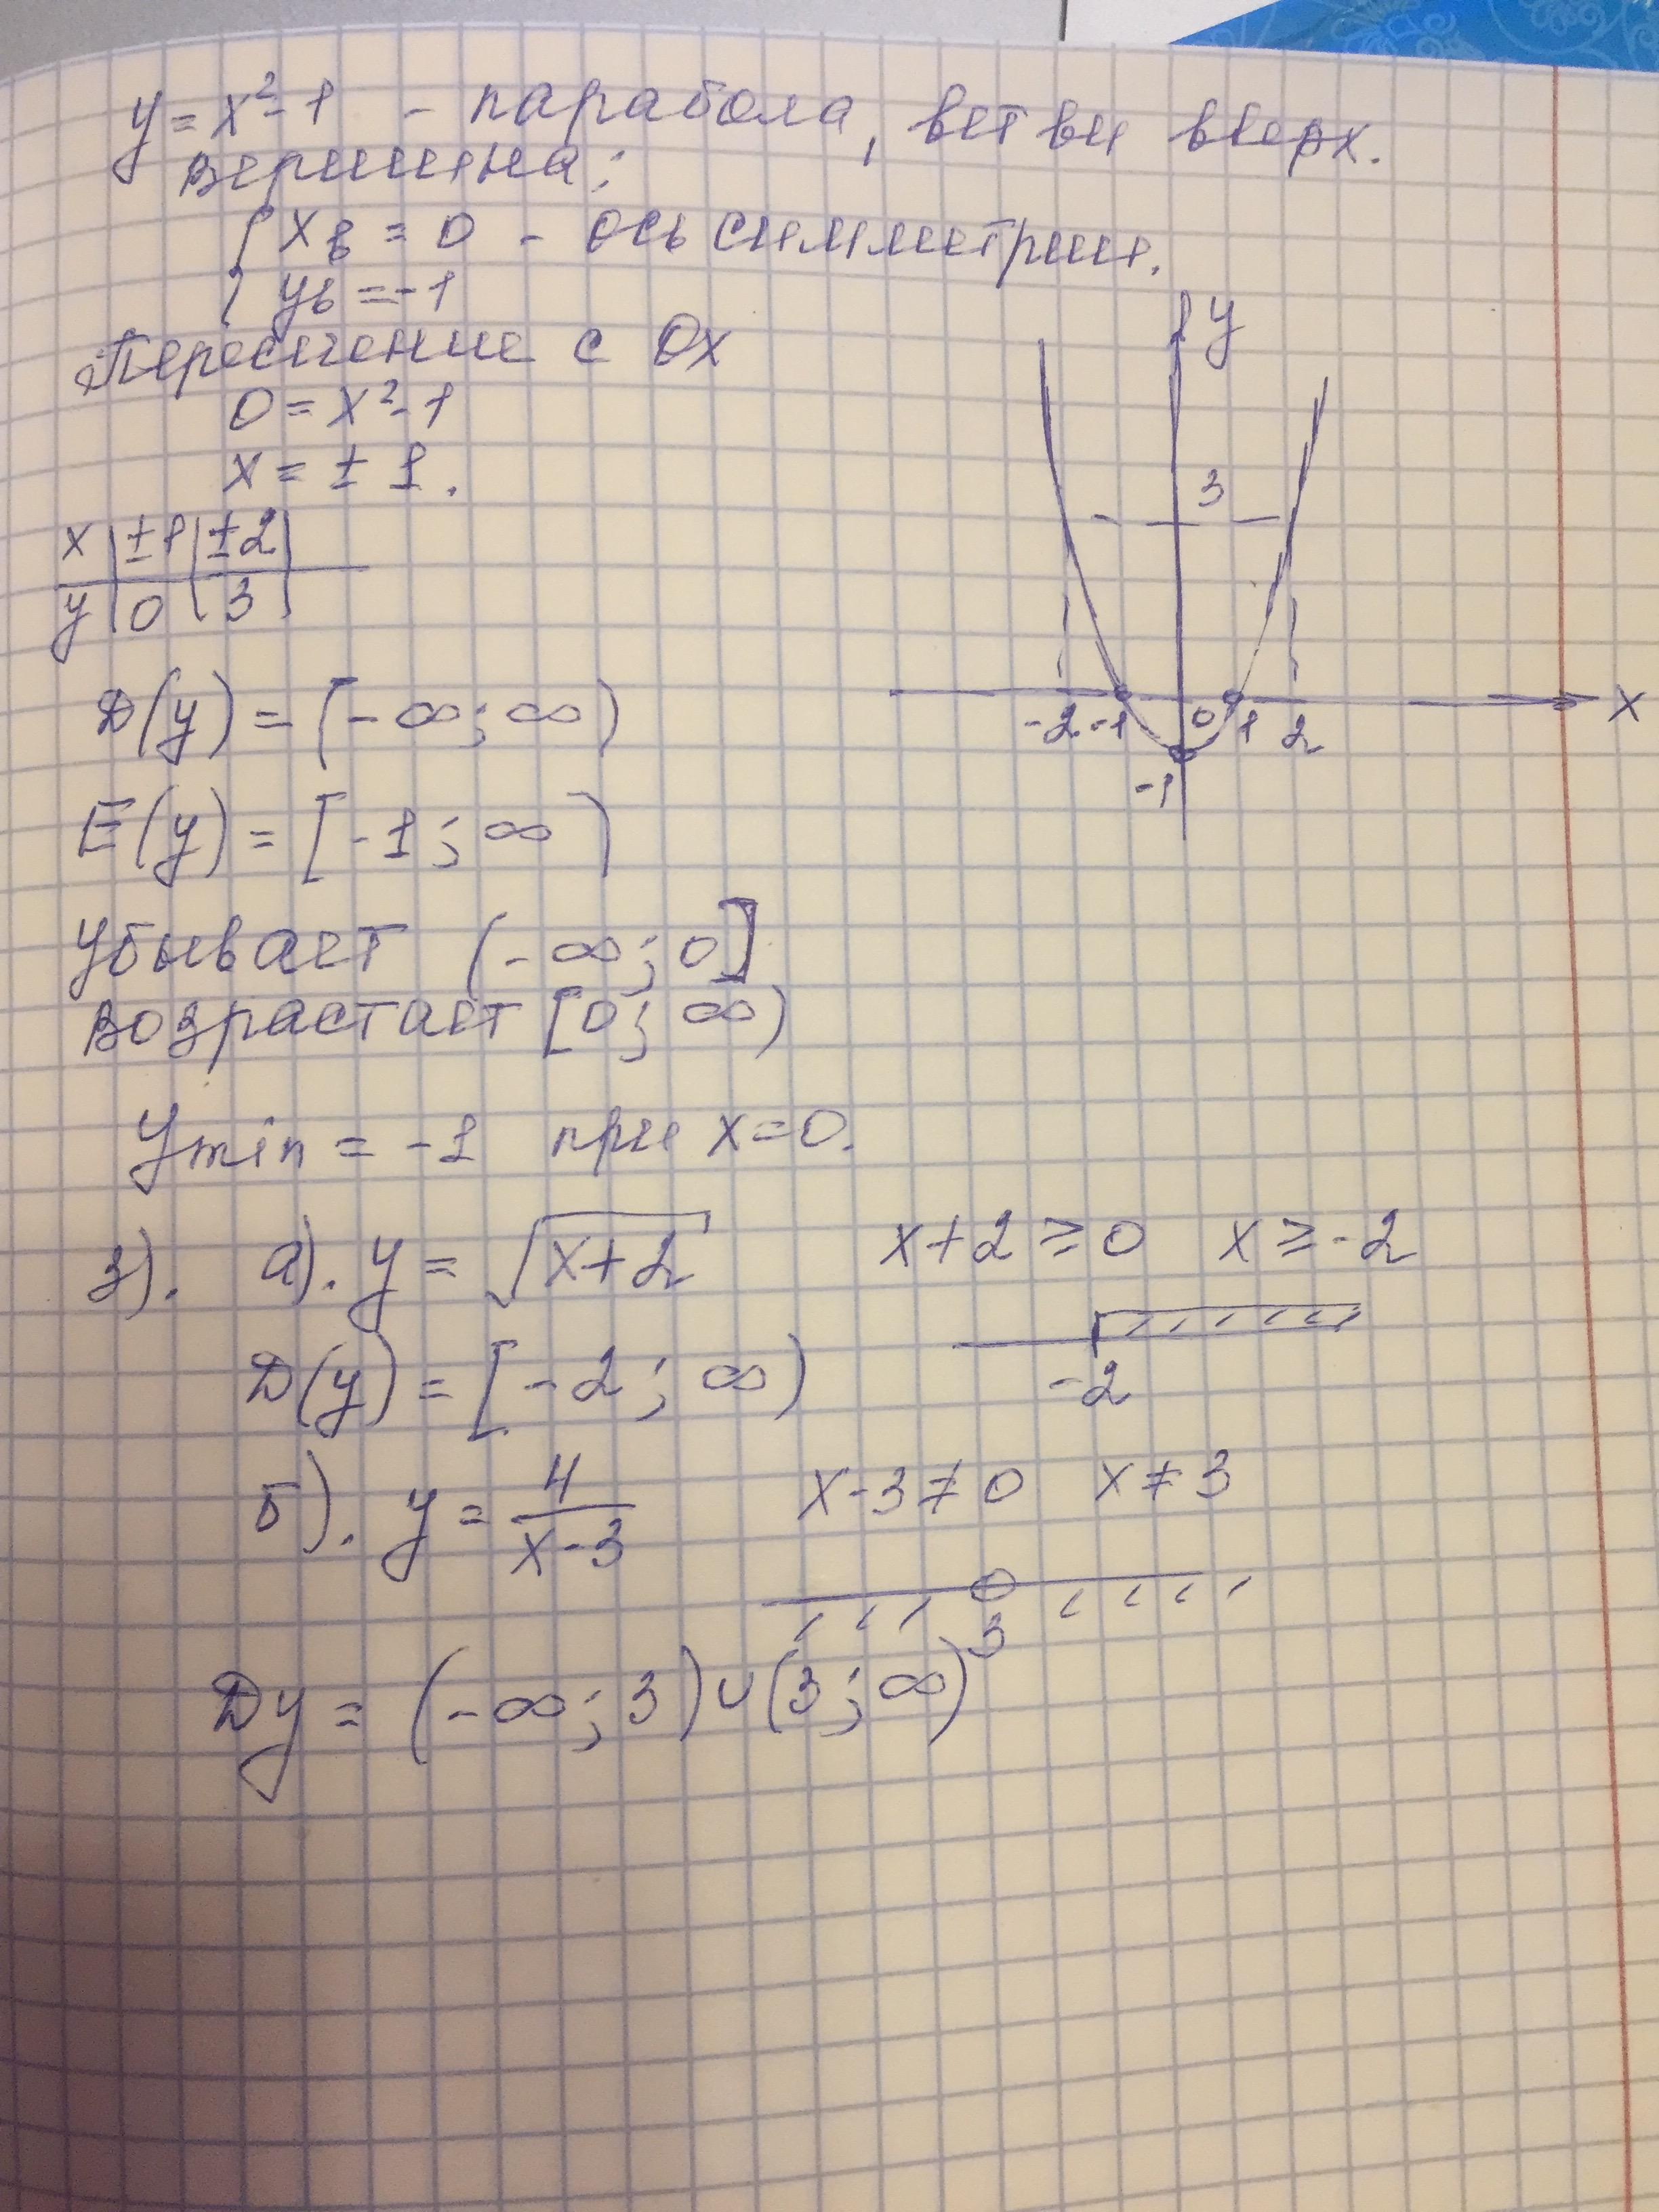 y = x² - 1 - парабола, ветви вверх.
вершина:
{ xв = 0 - ось симметрии.
{ yв = -1
Пересечение с Ox
0 = x² - 1
x = ± 1.
x | ±1 | ±2 |
y | 0 | 3 |
y
3
-2 -1 0 1 2 x
-1
Д(y) = (-∞; ∞)
E(y) = [-1; ∞)
убывает (-∞; 0]
возрастает [0; ∞)
y min = -1 при x = 0.
3). а). y = √(x+2) x+2 ≥ 0 x ≥ -2
Д(y) = [-2; ∞) -2
Б). y = 4/(x-3) x-3 ≠ 0 x ≠ 3
3
Дy = (-∞; 3) ∪ (3; ∞)